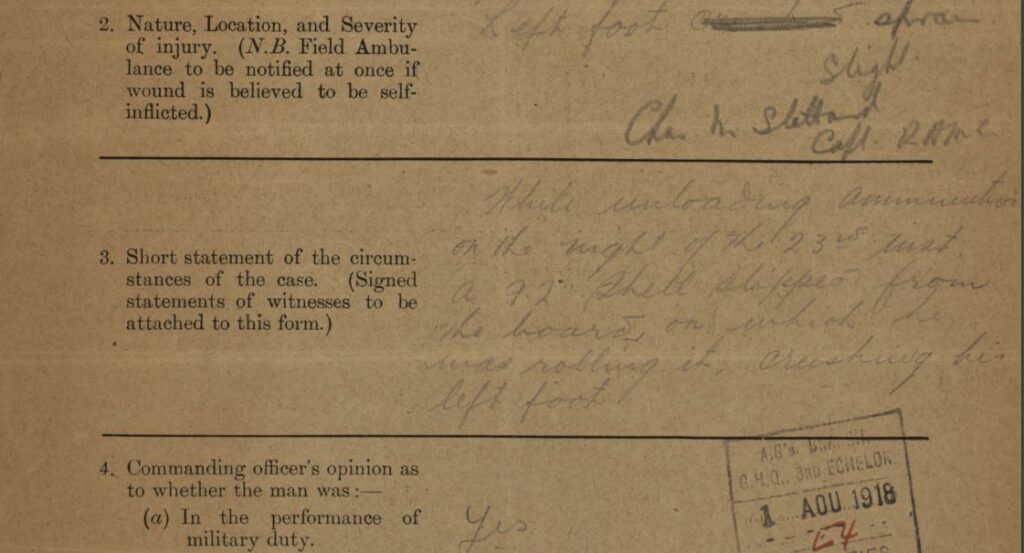 2. Nature, Location, and Severity
of injury. (N.B. Field Ambu-
lance to be notified at once if
wound is believed to be self-
inflicted.)
Left foot sprain
Slight.
Capt. R.A.M.C.
3. Short statement of the circum-
stances of the case. (Signed
statements of witnesses to be
attached to this form.)
While unloading ammunition
on the night of the 23rd inst
a 9.2" shell slipped from
the board, on which he
was rolling it, crushing his
left foot
4. Commanding officer's opinion as
to whether the man was:—
(a) In the performance of
military duty.
Yes
A.G's.
G.H.Q., 3RD ECHELON.
1 AOU 1918